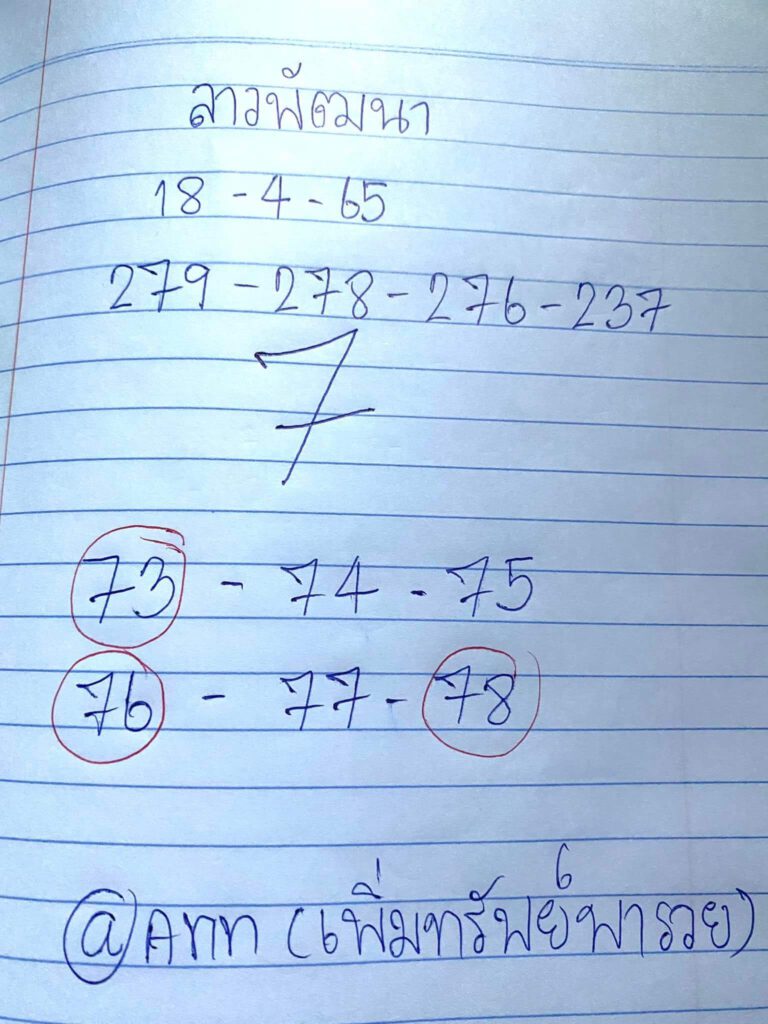 ลาวพัฒนา
18 - 4 - 65
279 - 278 - 276 - 237
7
73 - 74 - 75
76 - 77 - 78
@Ann (เพิ่มทรัพย์พารวย)